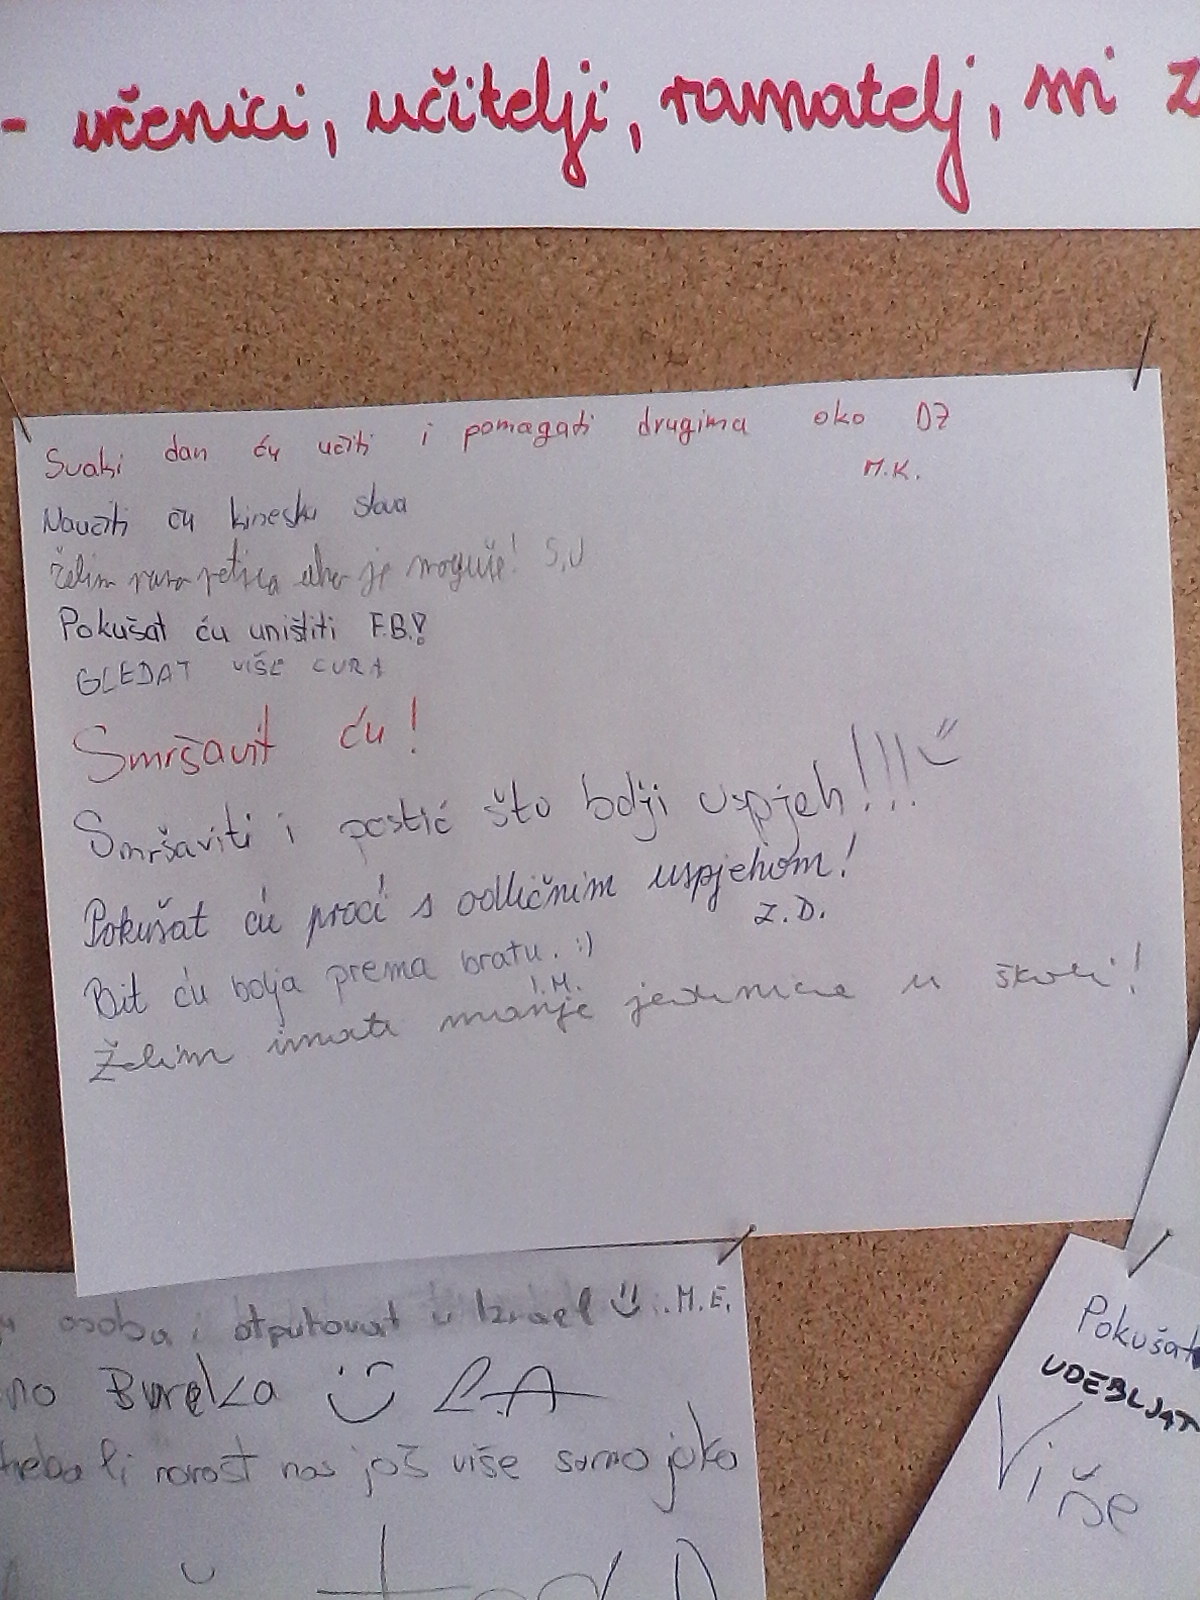 - učenici, učitelji, ravnatelj, mi
Svaki dan ću učiti i pomagati drugima oko DZ
M.K.
Naučiti ću kineska slova
Želim puno petica ako je moguće! S,U
Pokušat ću uništiti F.B.!
GLEDAT VIŠE CURA
Smršavit ću!
Smršaviti i postić što bolji uspjeh!!!
Pokušat ću proći s odličnim uspjehom!
Z.D.
Bit ću bolja prema bratu. :)
I.M.
Želim imati manje jedinica u školi!
osoba i otputovat u Izrael M.E.
no Bureka
treba li novost nas još više samo jako
Pokušat
UDEBLJAT
Više